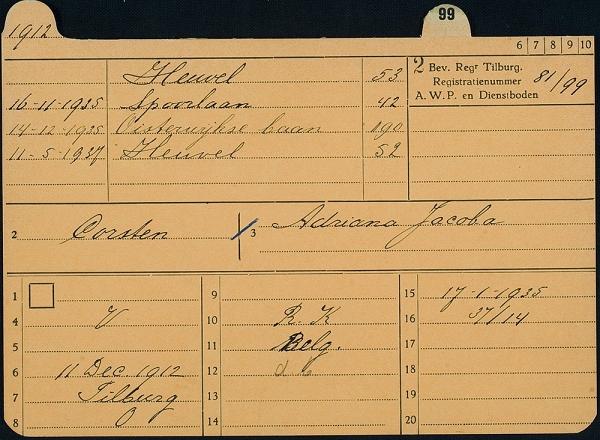 1912
99
6 7 8 9 10
Heuvel 53
16-11-1935 Spoorlaan 42
14-12-1935 Oisterwijkse baan 190
11-5-1937 Heuvel 52
2 Bev. Regr Tilburg.
Registratienummer 81/99
A. W. P. en Dienstboden
2 Corsten
3 Adriana Jacoba
1
4 V
5
6 11 Dec. 1912
7 Tilburg
8
9
10 R. K
11 Belg.
12 d b
13
14
15 17-1-1935
16 37/14
17
18
19
20